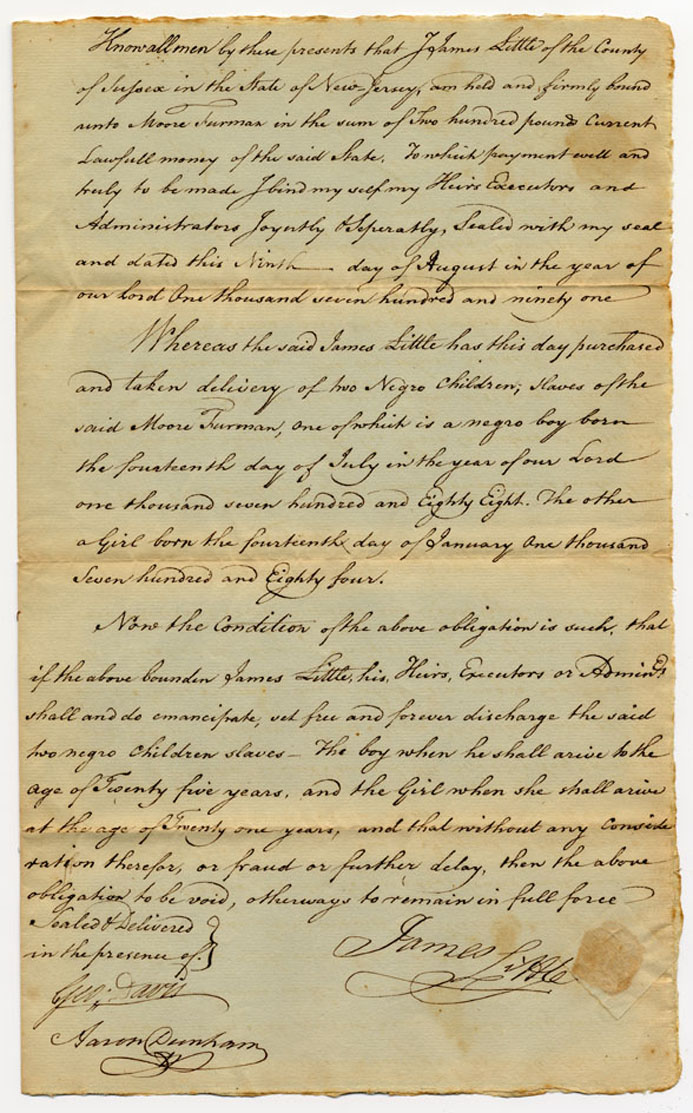 Know all men by these presents that I James Little of the County
of Sussex in the State of New-Jersey, am held and firmly bound
unto Moore Furman in the sum of Two hundred pounds Current
Lawfull money of the said State. To which payment well and
truly to be made I bind my self my Heirs Executors and
Administrators Joyntly & Seperatly, Sealed with my seal
and dated this Ninth day of August in the year of
our Lord One thousand seven hundred and ninety one
Whereas the said James Little has this day purchased
and taken delivery of two Negro Children; slaves of the
said Moore Furman, one of which is a negro boy born
the fourteenth day of July in the year of our Lord
one thousand seven hundred and Eighty Eight. The other
a Girl born the fourteenth day of January One thousand
Seven hundred and Eighty four.
Now the Condition of the above obligation is such, that
if the above bounden James Little, his, Heirs, Executors or Admin.rs
shall and do emancipate, set free and forever discharge the said
two negro Children slaves – The boy when he shall arive to the
age of Twenty five years, and the Girl when she shall arive
at the age of Twenty one years, and that without any Conside
ration therefor, or fraud or further delay, then the above
obligation to be void, otherways to remain in full force
Sealed & Delivered
in the presence of.
James Little
Geo; Davis
Aaron Dunham